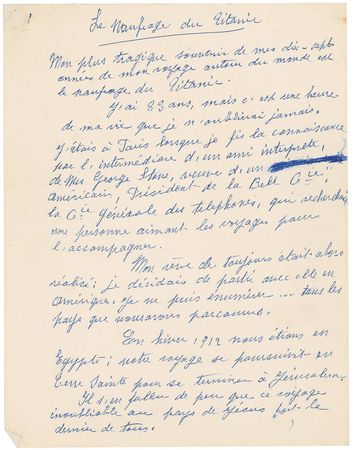 1
Le Naufrage du Titanic
Mon plus tragique souvenir de mes dix-sept
années de mon voyage autour du monde est
le naufrage du Titanic.
J'ai 83 ans, mais c'est une heure
de ma vie que je n'oublierai jamais.
J'étais à Paris lorsque je fis la connaissance
par l'intermédiaire d'un ami interprète,
de Mrs George Stone, veuve d'un
américain, Président de la Bell Cie
la Cie Générale des téléphones, qui recherchait
une personne aimant les voyages pour
l'accompagner.
Mon rêve de toujours était alors
réalisé; je décidais de partir avec elle en
Amérique, je ne puis énumérer ... tous les
pays que nous avons parcourus.
En hiver 1912 nous étions en
Egypte; notre voyage se poursuivit en
Terre Sainte pour se terminer à Jérusalem.
Il s'en fallu de peu que ce voyage
inoubliable au pays de Jésus fut le
dernier de tous.